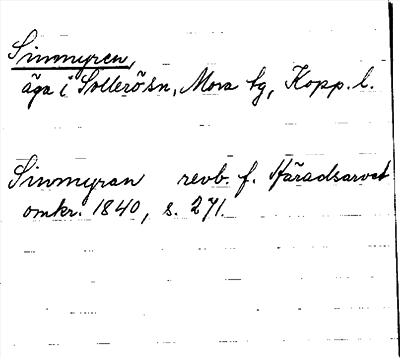 Sinnmyren,
äga i Sollerö sn, Mora tg, Kopp. l.
Sinnmyran revb. f. Häradsarvet
omkr. 1840, s. 271.